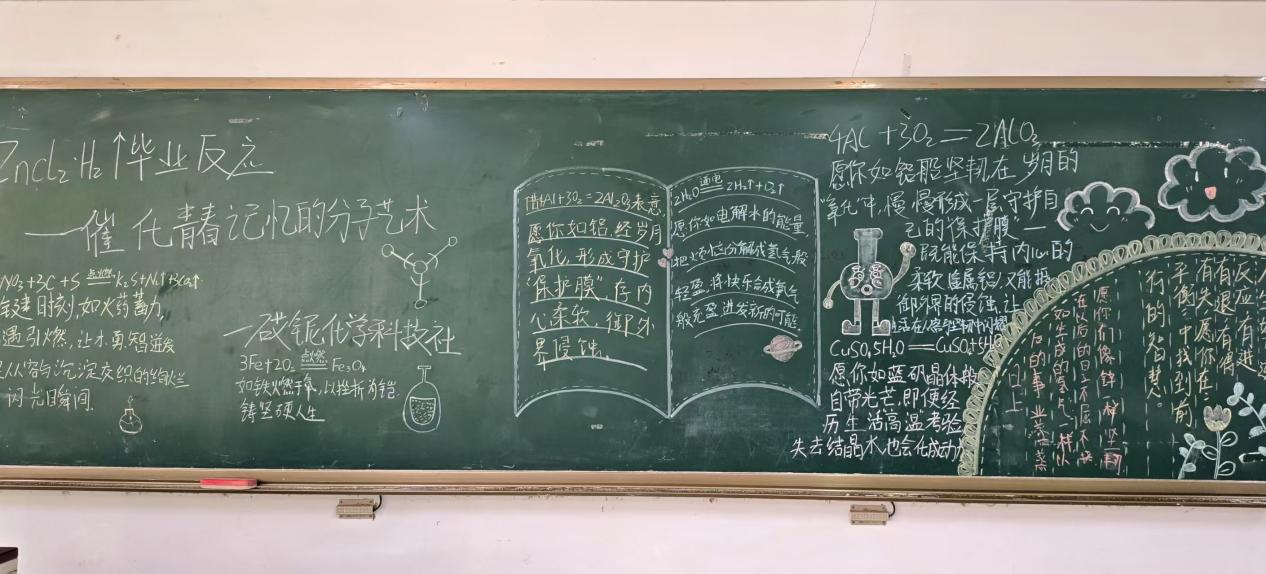 ZnCl₂·H₂↑毕业反应
—催化青春记忆的分子艺术
NO₃+3C+S 点燃 K₂S+N₂↑+3CO₂↑
时刻,如火药蓄力,
遇引燃,让才勇智迸发
从容与沉淀交织的绚烂
闪光瞬间.
—碳铌化学科技社
3Fe+2O₂ 点燃 Fe₃O₄
如铁火燃于氧,以挫折为铠
铸坚硬人生
借4Al+3O₂=2Al₂O₃表意,
愿你如铝,经岁月
氧化,形成守护
“保护膜”,存内
心柔软,御外
界侵蚀.
2H₂O 通电 2H₂↑+O₂↑
愿你如电解水的能量,
把分解成氢气般
轻盈,将快乐合成氧气
般充盈,迸发新的可能.
4Al+3O₂=2AlO₃
愿你如铝般坚韧在岁月的
“氧化”中,慢慢形成一层守护自
己的保护膜”—
既能保持内心的
柔软金属铝,又能抵
御外界的侵蚀,让
CuSO₄5H₂O=CuSO₄+5H₂O
愿你如蓝矾晶体般
自带光芒,即使经
历生活高温考验
失去结晶水也会化成动力
反应有进
有退,有得
有失,愿你在
平衡中找到前
行的智慧。
愿你们像锌一样坚韧
在以后的日子不屈不挠
如生成的氢气一样